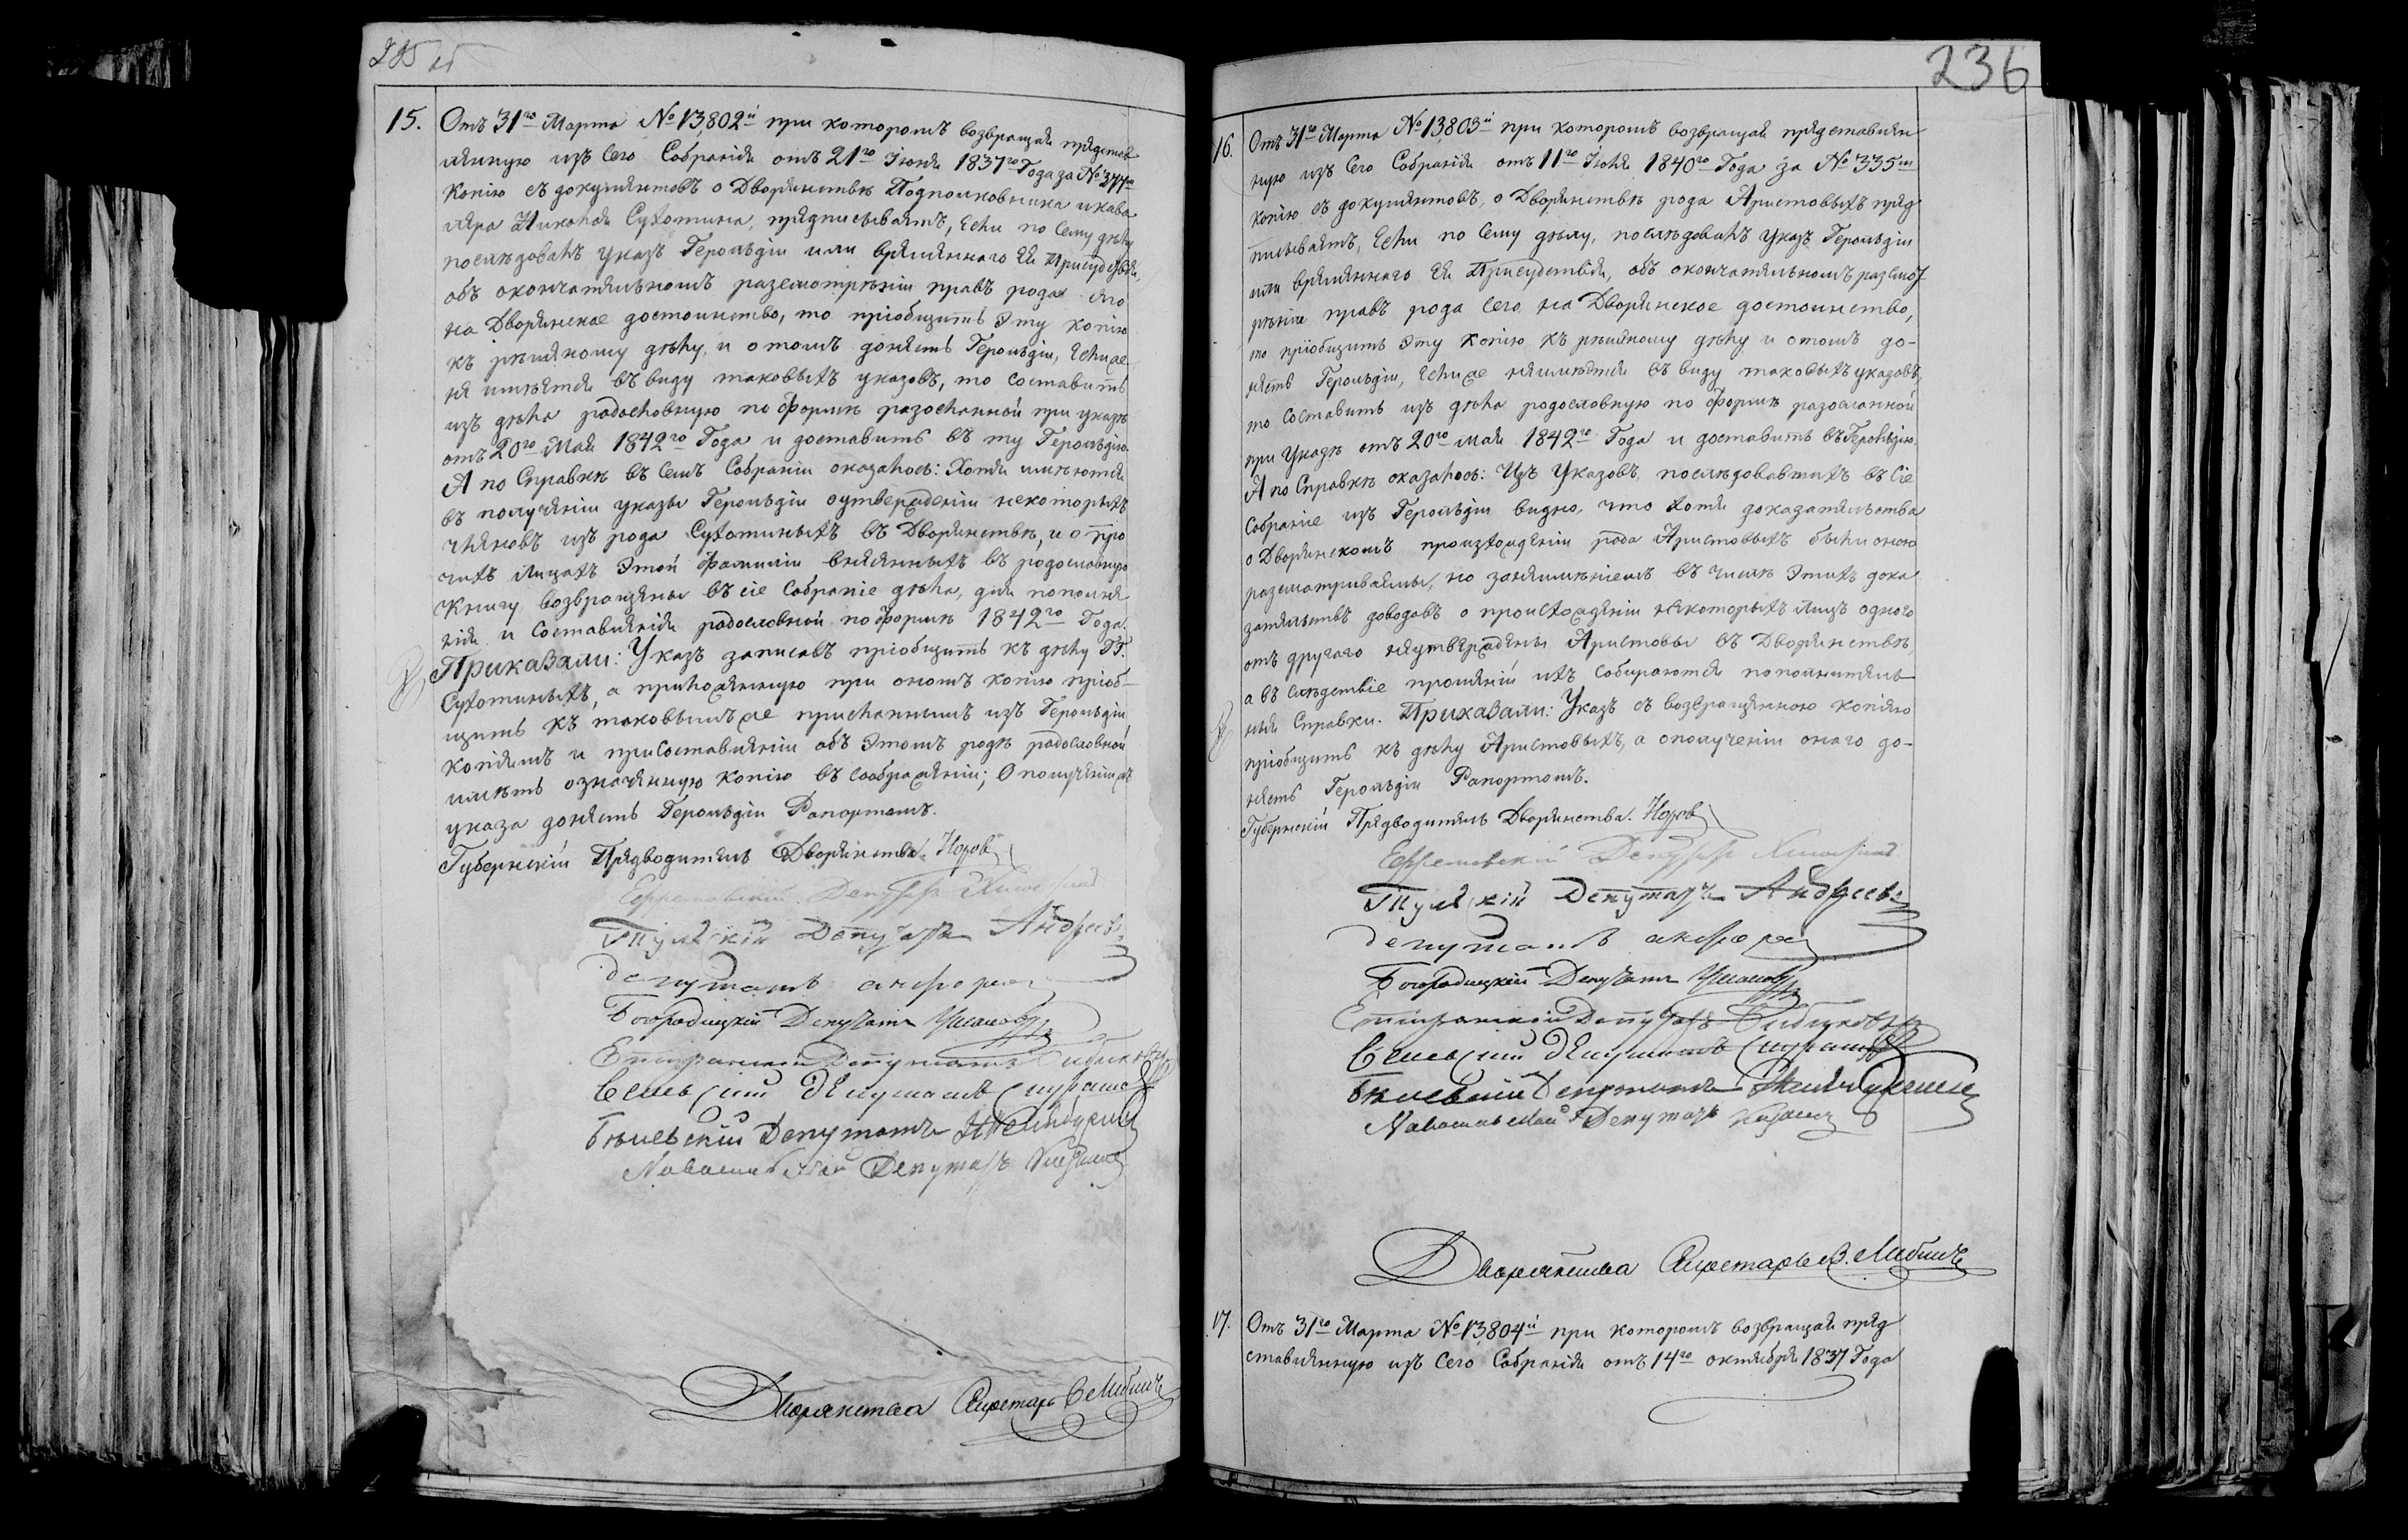 235 об
15. Отъ 31го Марта № 13802й при которомъ возвращая представ
ленную изъ сего Собранія отъ 21го Іюня 1837го Года за №
копію съ документовъ о Дворянствѣ Подполковника и кава
лера Николая Сухотина, предписываетъ, если по сему дѣлу
послѣдовалъ указъ Герольдіи или временнаго ея Присудствія,
объ окончательномъ разсмотреніи правъ рода его
на Дворянское достоинство, то пріобщить эту копію
къ рѣшеному дѣлу, и о томъ донесть Герольдіи, если же
не имѣется въ виду таковыхъ указовъ, то составить
изъ дѣла родословную по формѣ разосланной при указѣ
отъ 20го Мая 1842го Года и доставить въ ту Герольдію.
А по Справкѣ въ семъ Собраніи оказалось: Хотя имѣются
въ полученіи указы Герольдіи о утвержденіи некоторыхъ
членовъ изъ рода Сухотиныхъ въ Дворянствѣ, и о про
чихъ лицахъ этой фамиліи внесенныхъ въ родословную
Книгу возвращены въ сіе Собраніе дѣла, для пополне
нія и составленія родословной по формѣ 1842го Года.
Приказали: Указъ записавъ пріобщить къ дѣлу ГГ.
Сухотиныхъ, а приложенную при ономъ копію пріоб-
щить къ таковымъ же присланнымъ изъ Герольдіи
копіямъ и при составленіи объ этомъ родѣ родословной
имѣть означенную копію въ соображеніи; О полученіи
указа донесть Герольдіи Рапортомъ.
Губернскій Предводитель Дворянства. Норов
Ефремовскій Депутатъ
Тульскій Депутатъ Андреевъ
депутатъ
Богородицкій Депутатъ Ушаковъ
Епифанскій Депутатъ Бибиковъ
Депутатъ
Бѣлевскій Депутатъ
Новосильскій Депутатъ
Дворянства Секретарь
236
16. Отъ 31го Марта № 13803й при которомъ возвращая представлен
ную изъ сего Собранія отъ 11го Іюля 1840го Года за № 335м
копію съ документовъ, о Дворянствѣ рода Аристовыхъ пред
писываетъ, если по сему дѣлу, послѣдовалъ указъ Герольдіи
или временнаго ея Присудствія, объ окончательномъ разсмот
рѣніи правъ рода сего на Дворянское достоинство,
то пріобщить эту копію къ рѣшеному дѣлу и о томъ до-
несть Герольдіи, если же не имѣется въ виду таковыхъ указовъ,
то составить изъ дѣла родословную по формѣ разосланной
при Указѣ отъ 20го мая 1842го Года и доставить въ Герольдію.
А по Справкѣ оказалось: Изъ Указовъ, послѣдовавшихъ въ Сіе
Собраніе изъ Герольдіи видно, что хотя доказательства
о Дворянскомъ произхожденіи рода Аристовыхъ были оною
разсматриваемы, но за неимѣніемъ въ числѣ этихъ дока
зательствъ доводовъ о происхожденіи некоторыхъ лицъ одного
отъ другаго неутверждены Аристовы въ Дворянствѣ,
а въ слѣдствіе прошеній ихъ собираются пополнитель
ныя Справки. Приказали: Указъ съ возвращенною копіею
пріобщить къ дѣлу Аристовыхъ, а о полученіи онаго до-
несть Герольдіи Рапортомъ.
Губернскій Предводитель Дворянства. Норов
Ефремовскій Депутатъ
Тульскій Депутатъ Андреевъ
депутатъ
Богородицкій Депутатъ Ушаковъ
Епифанскій Депутатъ Бибиковъ
Депутатъ
Бѣлевскій Депутатъ
Новосильской Депутатъ
Дворянства Секретарь
17. Отъ 31го Марта № 13804й при которомъ возвращая пред
ставленную изъ сего Собранія отъ 14го октября 1837 Года